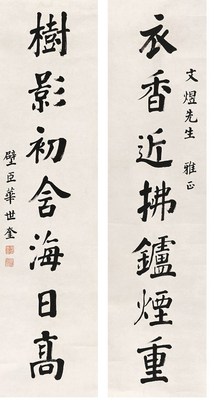 文煜先生 雅正
衣香近拂鑪煙重
樹影初含海日高
璧臣華世奎